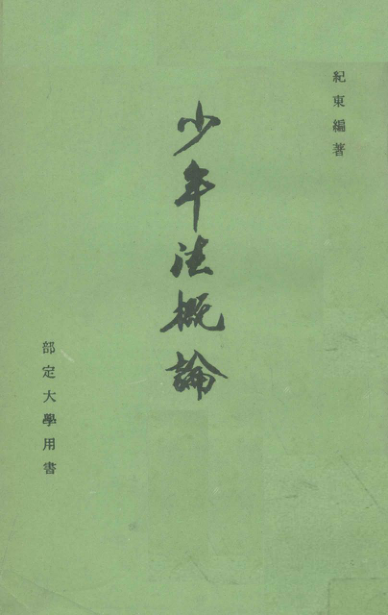 紀東編著
少年法概論
部定大學用書